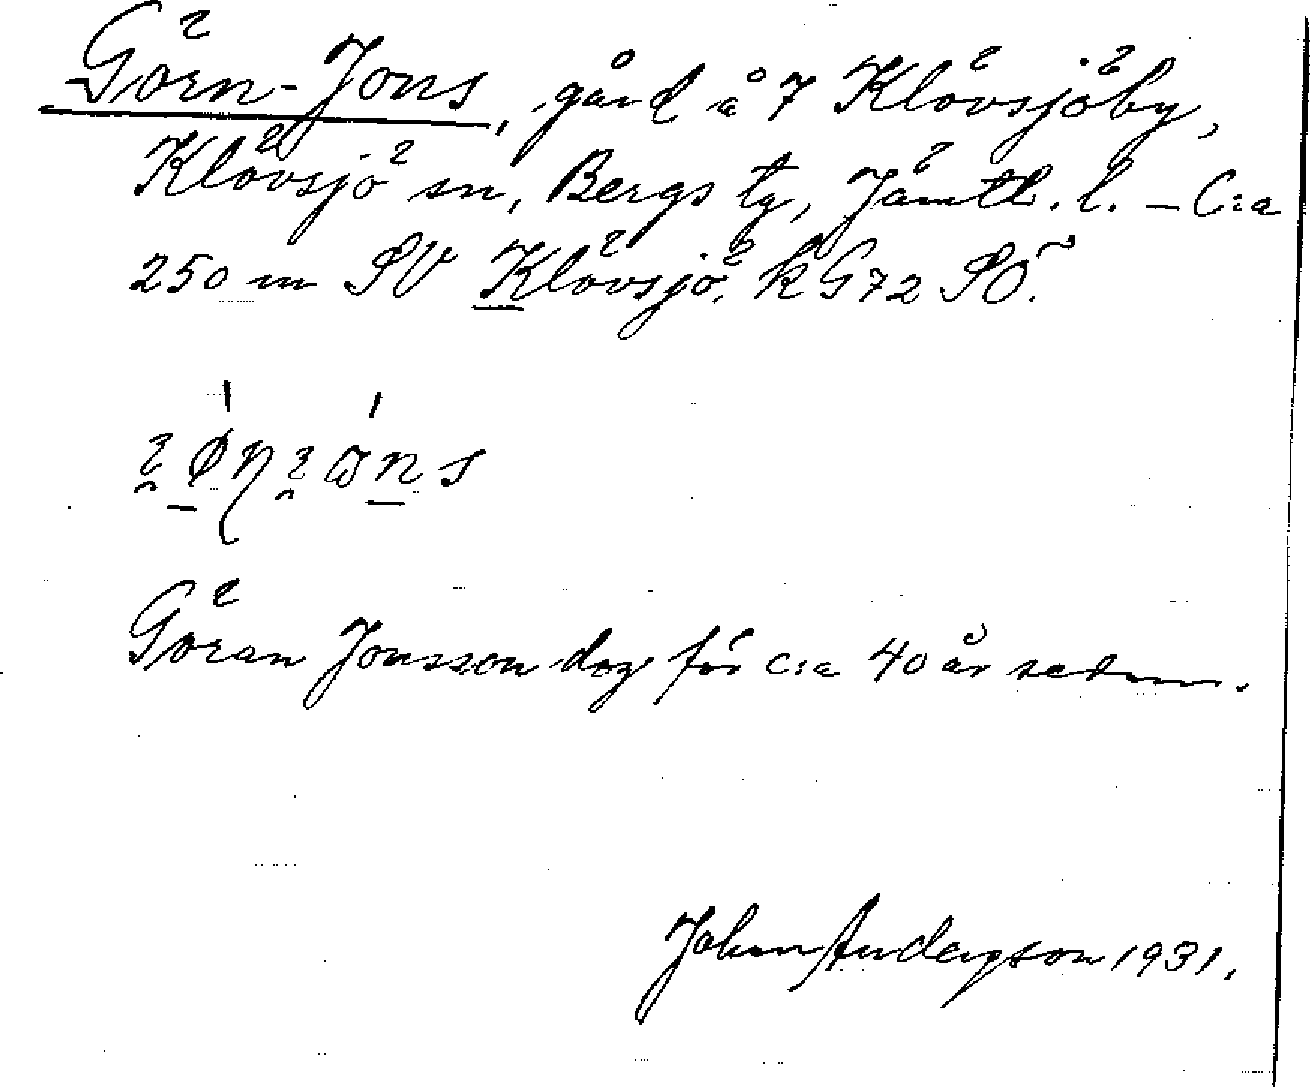 Görn-Jons, gård å 7 Klövsjöby,
Klövsjö sn, Bergs tg, Jämtl. l. – C:a
250 m SV Klövsjö k G72 SÖ.
Göran Jonsson dog för c:a 40 år sedan.
Johan Anderson 1931.